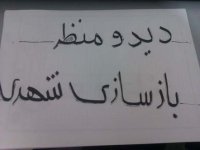 دید و منظر
بازسازی شهری